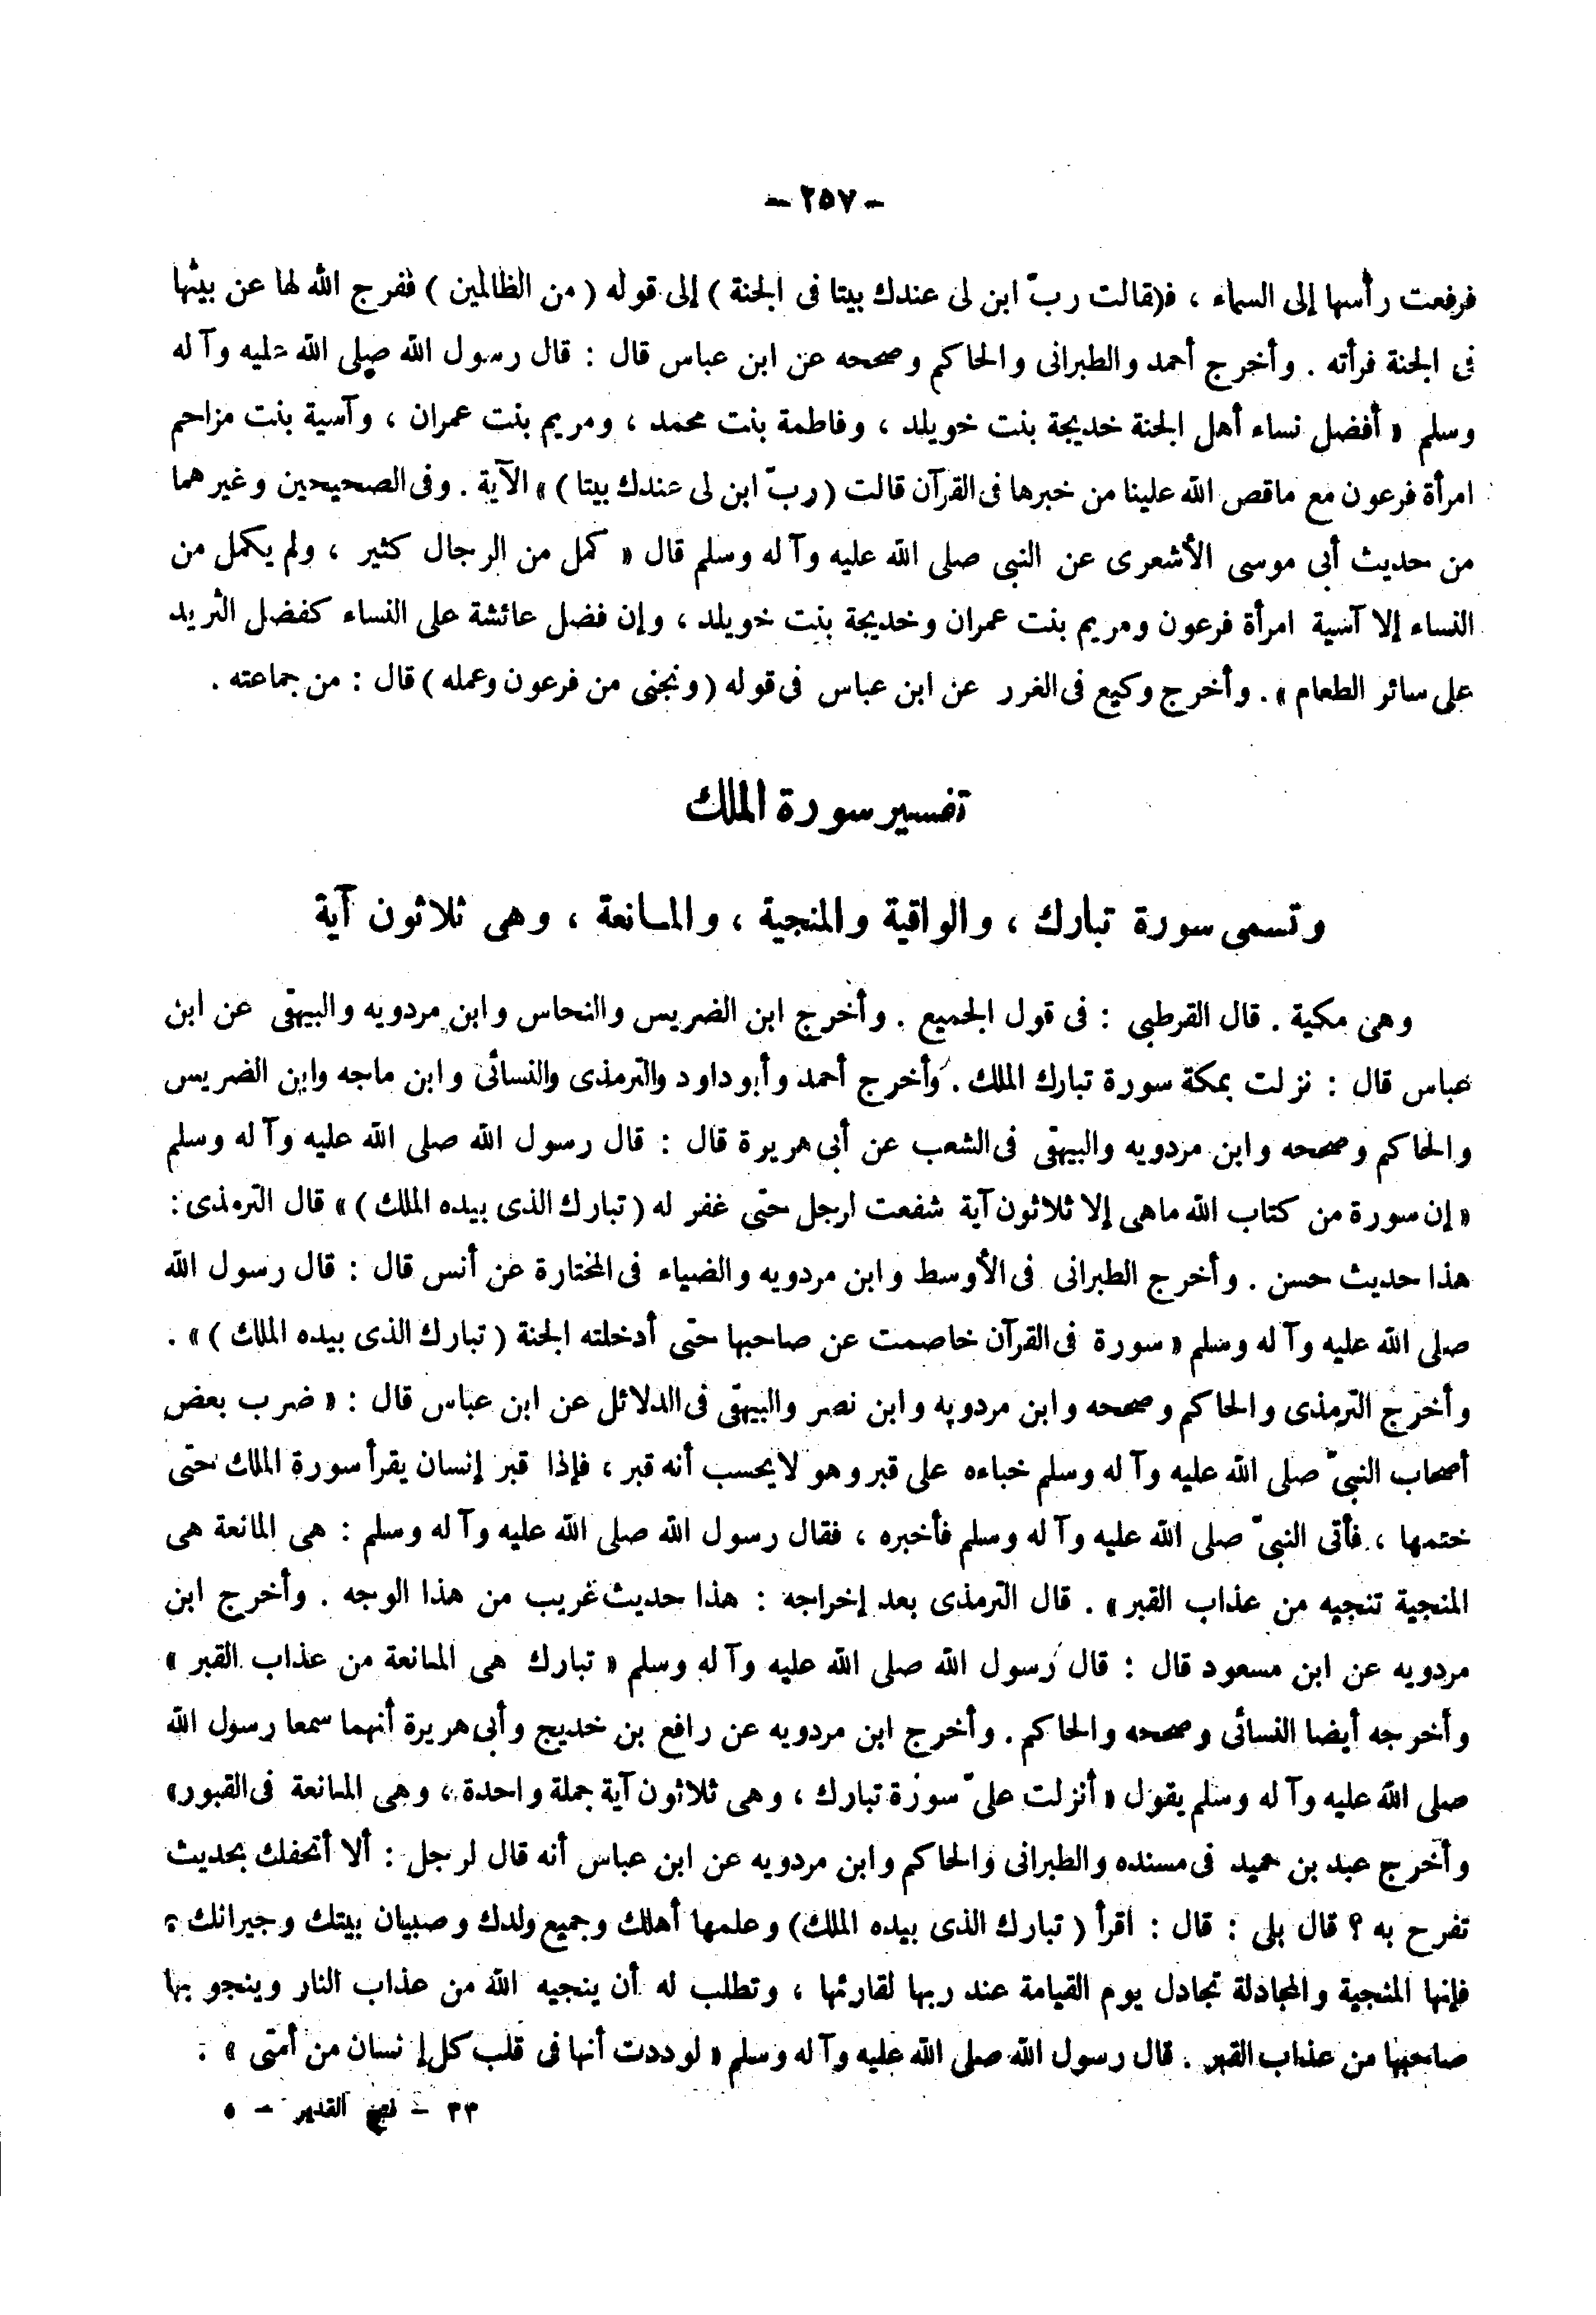 - ٢٥٧ -
فرفعت رأسها إلى السماء ، ف(قالت ربّ ابن لى عندك بيتا فى الجنة ) إلى قوله ( من الظالمين ) ففرج الله لها عن بيتها
فى الجنة فرأته . وأخرج أحمد والطبرانى والحاكم وصححه عن ابن عباس قال : قال رسول الله صلى الله عليه وآله
وسلم « أفضل نساء أهل الجنة خديجة بنت خويلد ، وفاطمة بنت محمد ، ومريم بنت عمران ، وآسية بنت مزاحم
امرأة فرعون مع ماقص الله علينا من خبرها فى القرآن قالت ( ربّ ابن لى عندك بيتا ) » الآية . وفى الصحيحين وغيرهما
من حديث أبى موسى الأشعرى عن النبى صلى الله عليه وآله وسلم قال « كمل من الرجال كثير ، ولم يكمل من
النساء إلا آسية امرأة فرعون ومريم بنت عمران وخديجة بنت خويلد ، وإن فضل عائشة على النساء كفضل الثريد
على سائر الطعام » . وأخرج وكيع فى الغرر عن ابن عباس فى قوله ( ونجنى من فرعون وعمله ) قال : من جماعته .
تفسير سورة الملك
وتسمى سورة تبارك ، والواقية والمنجية ، والمـانعة ، وهى ثلاثون آية
وهى مكية . قال القرطبى : فى قول الجميع . وأخرج ابن الضريس والنحاس وابن مردويه والبيهقى عن ابن
عباس قال : نزلت بمكة سورة تبارك الملك . وأخرج أحمد وأبو داود والترمذى والنسائى وابن ماجه وابن الضريس
والحاكم وصححه وابن مردويه والبيهقى فى الشعب عن أبى هريرة قال : قال رسول الله صلى الله عليه وآله وسلم
« إن سورة من كتاب الله ماهى إلا ثلاثون آية شفعت لرجل حتى غفر له ( تبارك الذى بيده الملك ) » قال الترمذى :
هذا حديث حسن . وأخرج الطبرانى فى الأوسط وابن مردويه والضياء فى المختارة عن أنس قال : قال رسول الله
صلى الله عليه وآله وسلم « سورة فى القرآن خاصمت عن صاحبها حتى أدخلته الجنة ( تبارك الذى بيده الملك ) » .
وأخرج الترمذى والحاكم وصححه وابن مردويه وابن نصر والبيهقى فى الدلائل عن ابن عباس قال : « ضرب بعض
أصحاب النبىّ صلى الله عليه وآله وسلم خباءه على قبر وهو لايحسب أنه قبر ، فإذا قبر إنسان يقرأ سورة الملك حتى
ختمها ، فأتى النبىّ صلى الله عليه وآله وسلم فأخبره ، فقال رسول الله صلى الله عليه وآله وسلم : هى المانعة هى
المنجية تنجيه من عذاب القبر » . قال الترمذى بعد إخراجه : هذا حديث غريب من هذا الوجه . وأخرج ابن
مردويه عن ابن مسعود قال : قال رسول الله صلى الله عليه وآله وسلم « تبارك هى المانعة من عذاب القبر »
وأخرجه أيضا النسائى وصححه والحاكم . وأخرج ابن مردويه عن رافع بن خديج وأبى هريرة أنهما سمعا رسول الله
صلى الله عليه وآله وسلم يقول « أنزلت علىّ سورة تبارك ، وهى ثلاثون آية جملة واحدة ، وهى المانعة فى القبور »
وأخرج عبد بن حميد فى مسنده والطبرانى والحاكم وابن مردويه عن ابن عباس أنه قال لرجل : ألا أتحفك بحديث
تفرح به ؟ قال بلى : قال : اقرأ ( تبارك الذى بيده الملك) وعلمها أهلك وجميع ولدك وصبيان بيتك وجيرانك ؛
فإنها المنجية والمجادلة تجادل يوم القيامة عند ربها لقارئها ، وتطلب له أن ينجيه الله من عذاب النار وينجو بها
صاحبها من عذاب القبر . قال رسول الله صلى الله عليه وآله وسلم « لوددت أنها فى قلب كل إنسان من أمتى » .
٣٣ - فتح القدير - ٥